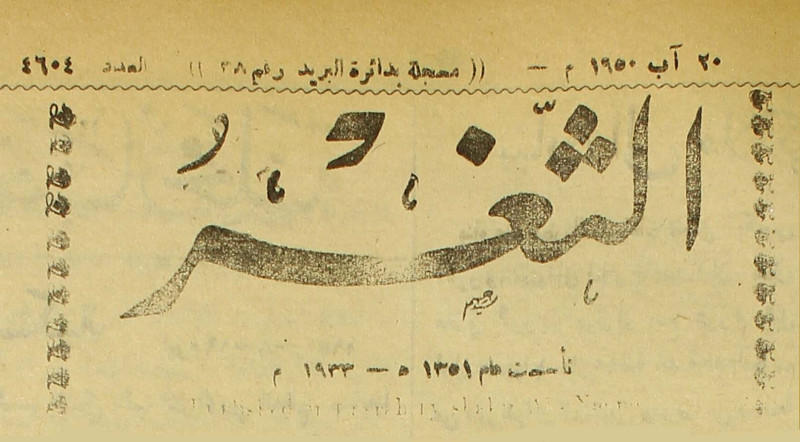 ٢٠ آب ١٩٥٠ م — (( مسجلة بدائرة البريد رقم ٣٨ )) العدد ٤٦٠٤
الثَّغْرُ
تأسست عام ١٣٥١ ه — ١٩٣٣ م